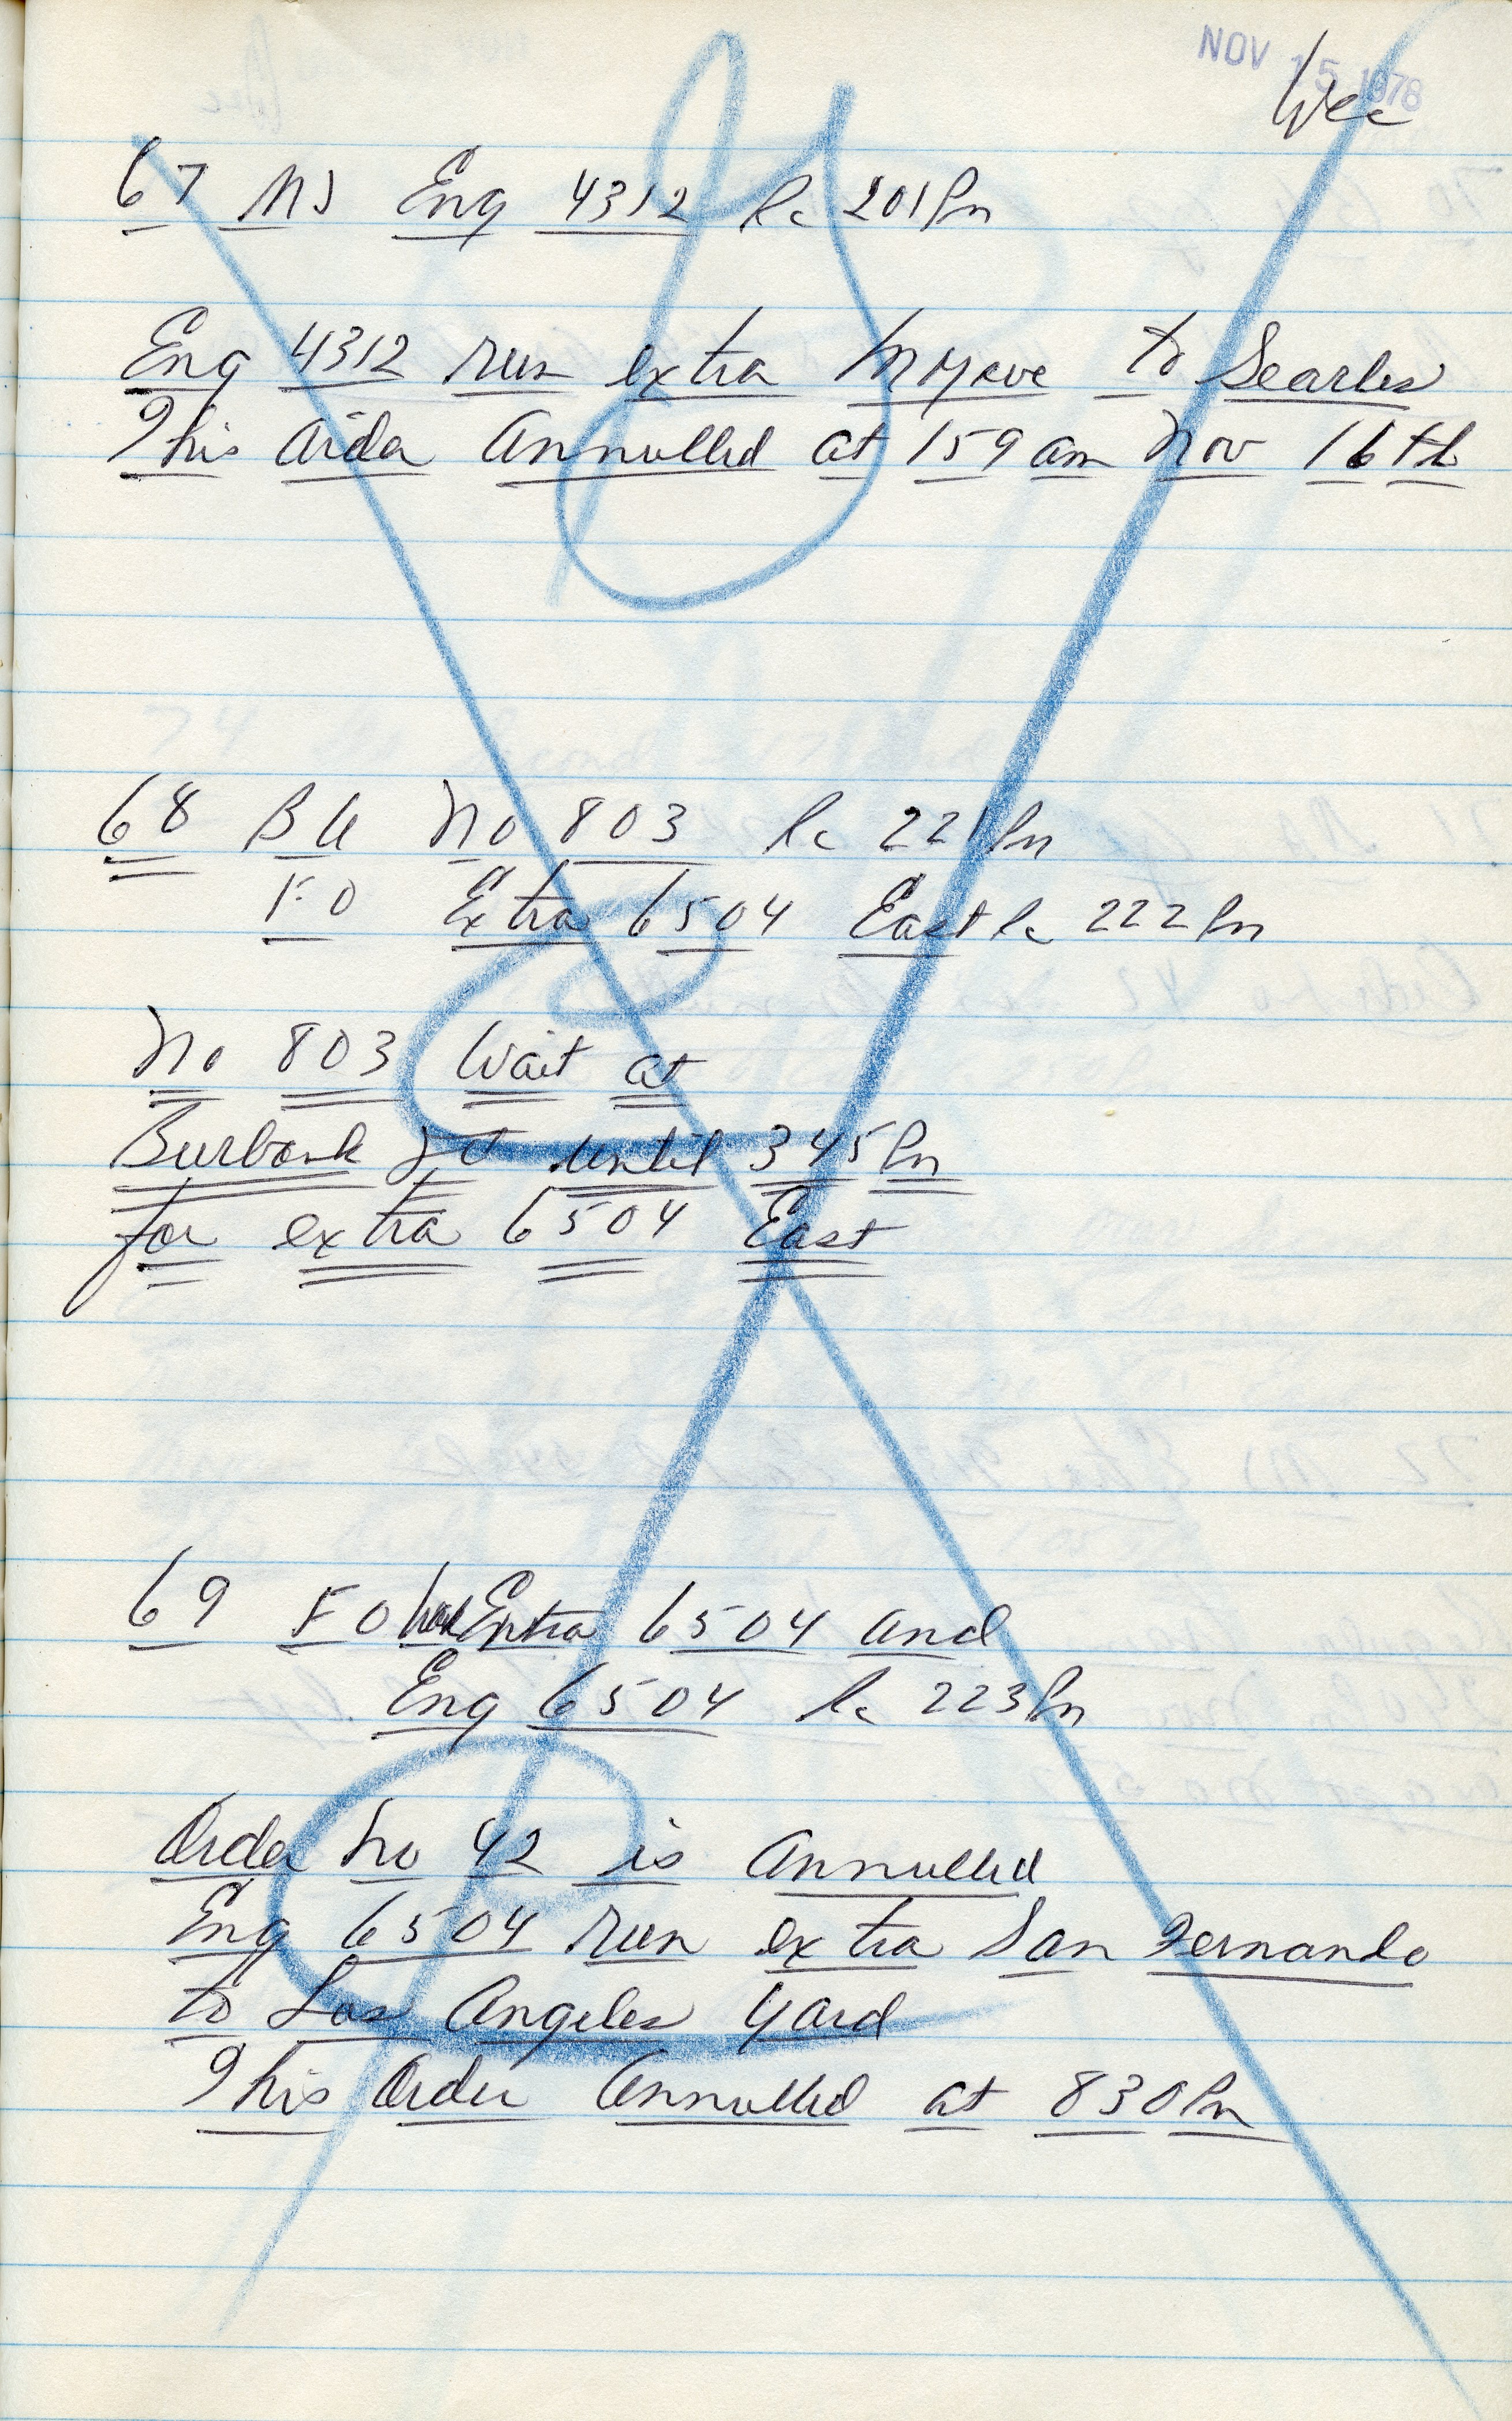 NOV 15 1978
67 MJ Eng 4312 Rc 201 Pm
Eng 4312 run extra Mojave to Searles
This Order Annulled at 159 am Nov 16th
68 BU No 803 Rc 221 Pm
FO Extra 6504 East Rc 222 Pm
No 803 Wait at
Burbank Jct until 345 Pm
for extra 6504 East
69 FO Extra 6504 and
Eng 6504 Rc 223 Pm
Order No 42 is Annulled
Eng 6504 run extra San Fernando
to Los Angeles Yard
This Order Annulled at 830 Pm